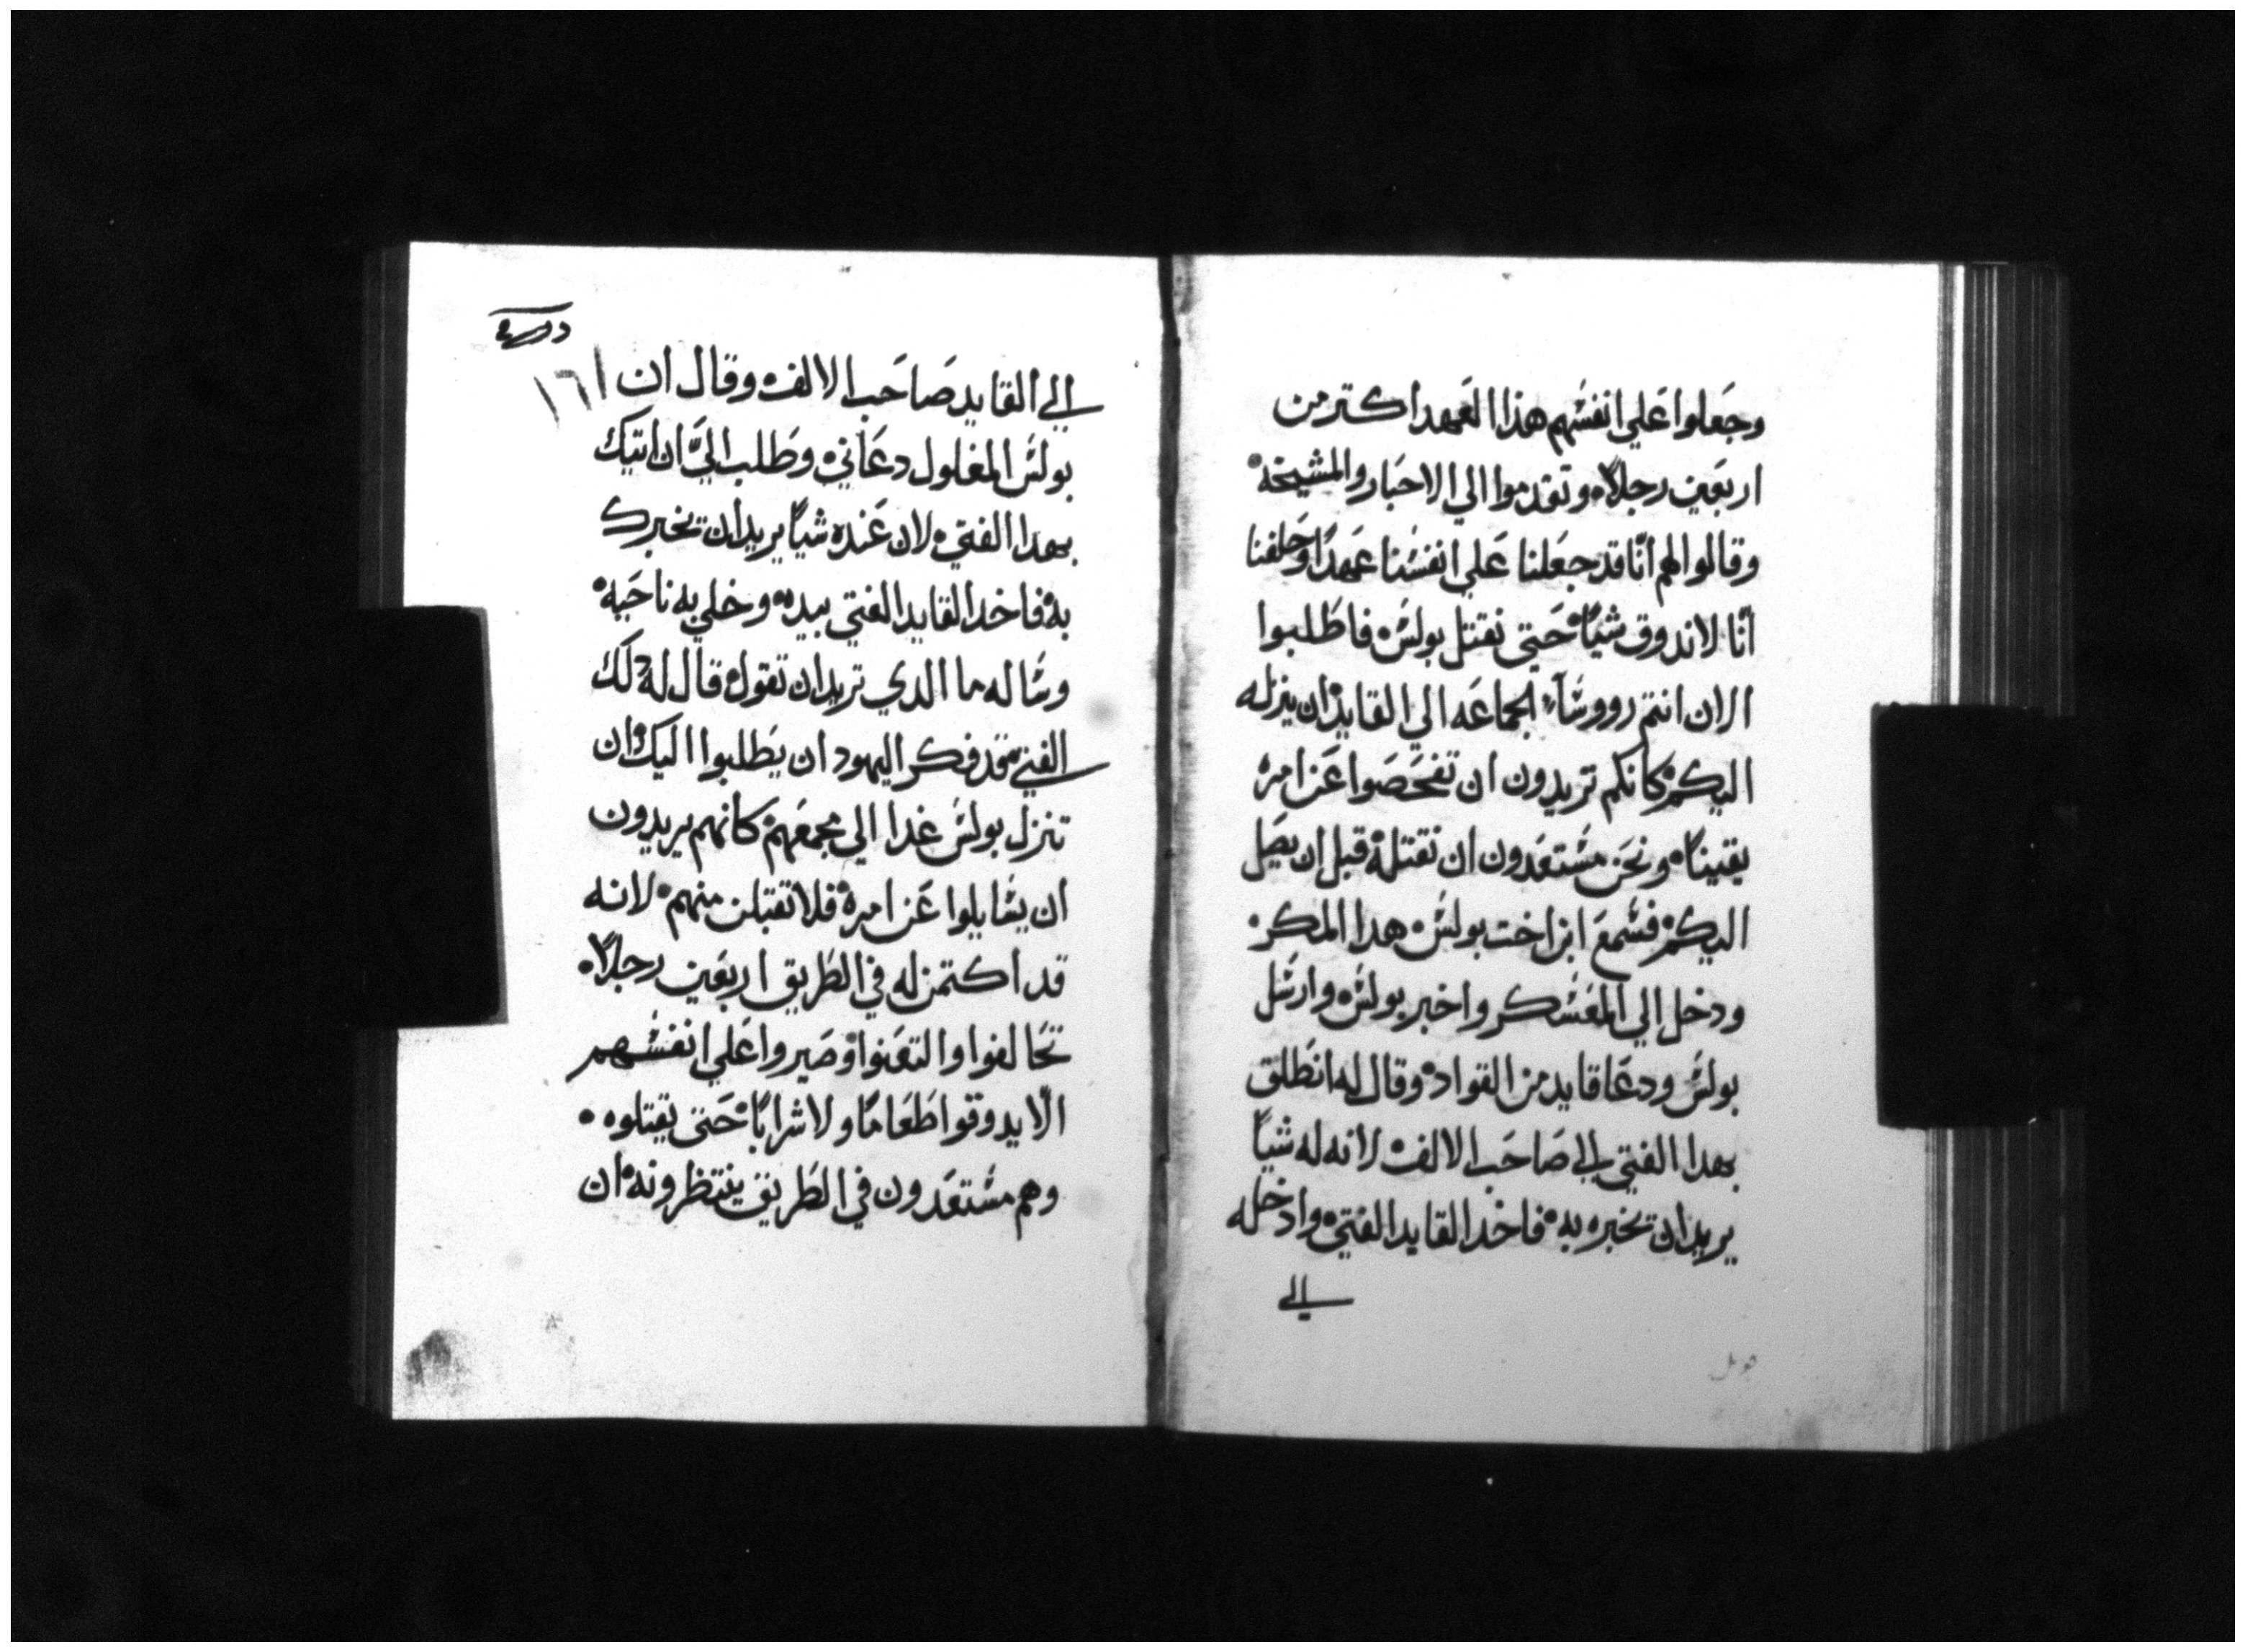 وجَعلوا عَلي انفسُهم هذا العَهد اكتر من
اربَعين رجلاً، وتقدموا الي الاحبَار والمشيخة،
وقالوا لهم انّا قد جعَلنا عَلي انفسُنا عَهدًا وحَلفنا
انّا لاندوق شيًا، حَتي نقتل بولسُ، فاطَلبوا
الان انتم رووسَآء الجماعَه الي القايد ان ينزله
اليكم، كانكم تريدون ان تفحَصَوا عَن امره
يقينًا، ونحَن مسُتعَدون ان نقتله، قبل ان يصَل
اليكم، فسُمعَ ابن اخت بولسُ، هدا المكر،
ودخل الي المعَسُكر واخبر بولسُ، وارسُل
بولسُ ودعَا قايد من القواد، وقال له انطَلق
بهدا الفتي الي صَاحَب الالف، لانه له شيًا
يريدان تخبره به، فاخد القايد الفتي، وادخله
الي
١٦١
الي القايد صَاحَب الالف، وقال ان
بولسُ المغلول دعَاني، وطَلب اليَّ ان اتيك
بهدا الفتي، لان عَنده شيًا يريدان تخبرك
به، فاخد القايد الفتي بيده، وخلي به ناحَية،
وسُاله ما الدي تريدان تقول، قال له دلك
الفتي، قد فكر اليهود ان يَطلبوا اليك، وان
تنزل بولسُ غدا الي مجمعَهم، كانهم يريدون
ان يسُايلوا عَن امره، فلا تقبلن منهم، لانه
قد اكتمن له في الطَريق اربَعين رجلاً،
تحَالفوا والتعَنوا، وصَيروا عَلي انفسُهم
الّا يدوقوا طَعَامًا ولا شرابًا، حَتي يقتلوه،
وهم مسُتعَدون في الطَريق ينتظرونه، ان